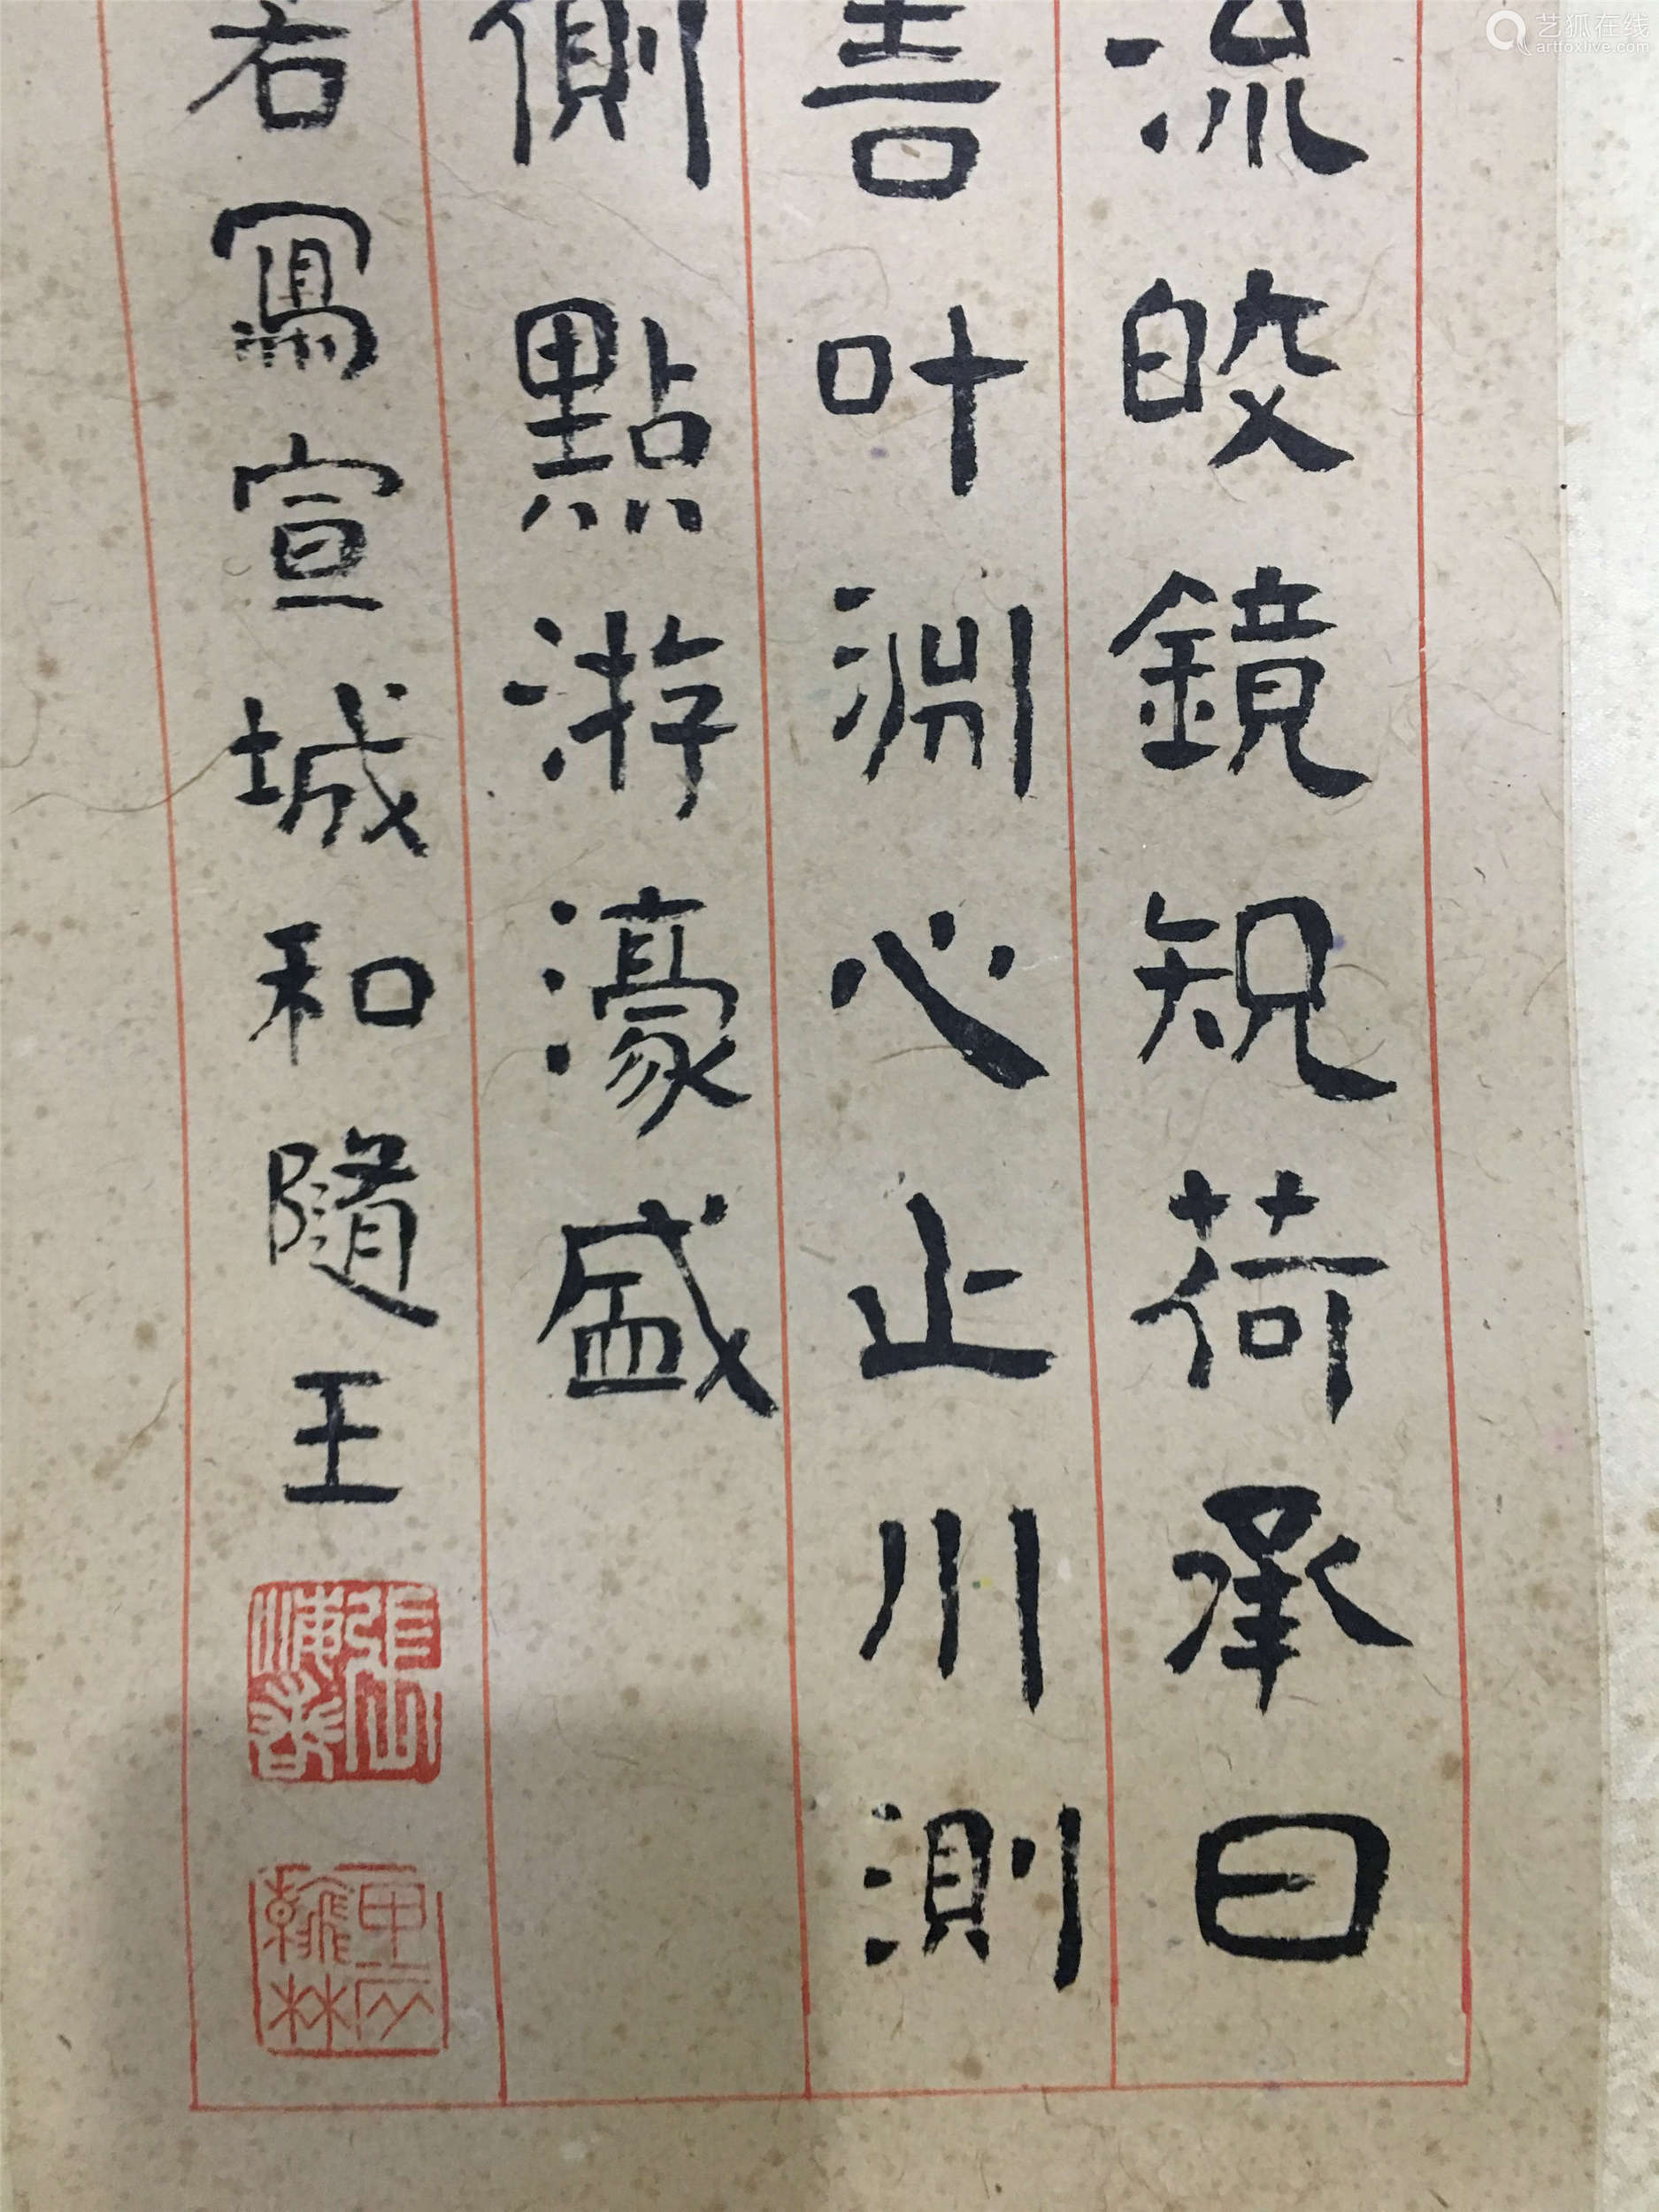 流皎鏡規荷承日
善叶淵心止川測
側點游濠盛
右寫宣城和隨王
張山
甲辰
翰林
艺狐在线
artfoxlive.com